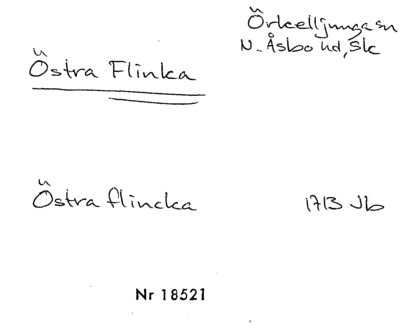 Örkelljunga sn
N. Åsbo hd, Sk
Östra Flinka
Östra flincka 1713 Jb
Nr 18521